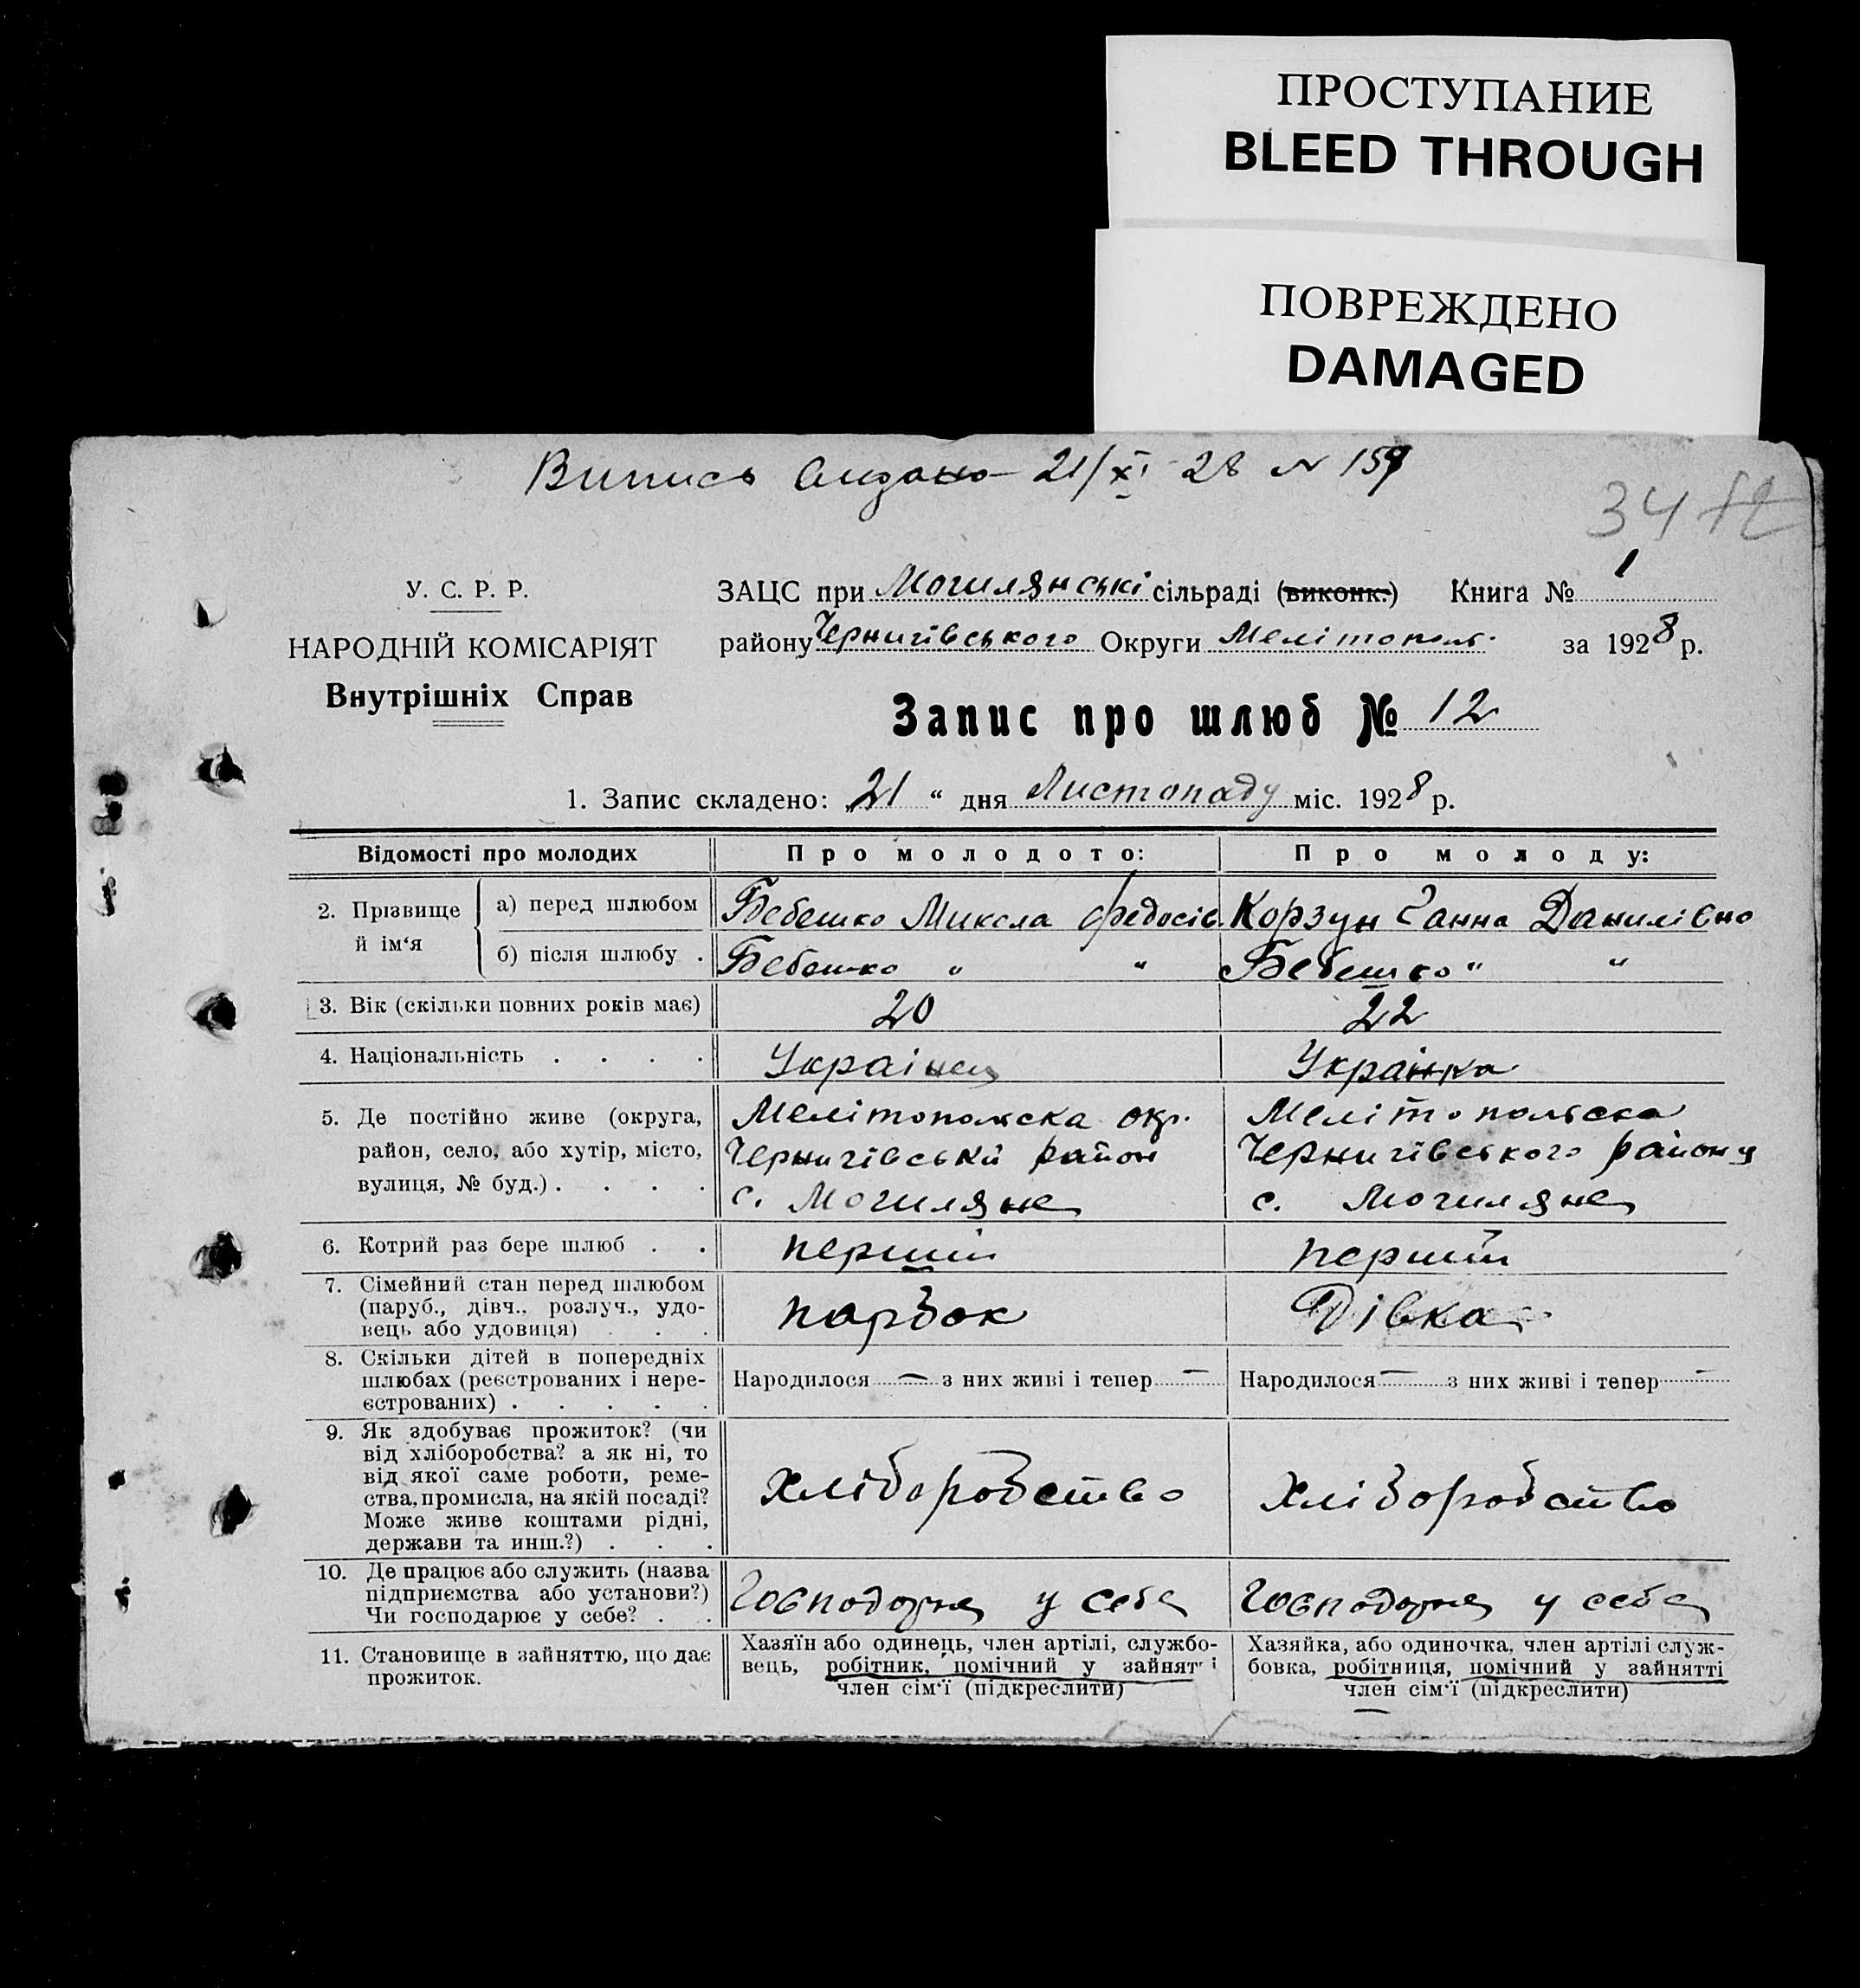 ПРОСТУПАНИЕ
BLEED THROUGH
ПОВРЕЖДЕНО
DAMAGED
Випись видано 21/XI 28 N 159
34
У. С. Р. Р.
НАРОДНІЙ КОМІСАРІЯТ
Внутрішніх Справ
ЗАЦС при Могилянські сільраді (виконк.) Книга № 1
району Чернигівського Округи Мелітополь. за 1928 р.
Запис про шлюб № 12
1. Запис складено: „21“ дня Листопаду міс. 1928 р.
Відомості про молодих
Про молодого:
Про молоду:
2. Прізвище й ім‘я
а) перед шлюбом
Бебешко Микола Федосів
Корзун Ганна Данилівно
б) після шлюбу .
Бебешко „ “
Бебешко “ “
3. Вік (скільки повних років має)
20
22
4. Національність . . . .
Украінец
Українка
5. Де постійно живе (округа,
район, село, або хутір, місто,
вулиця, № буд.) . . . .
Мелітопольска окр.
Чернигівський район
с. Могиляне
Мелітопольска
Чернигівського району
с. Могиляне
6. Котрий раз бере шлюб . .
перший
перший
7. Сімейний стан перед шлюбом
(паруб., дівч., розлуч., удо-
вець або удовиця) . . .
парбок
Дівка
8. Скільки дітей в попередніх
шлюбах (реєстрованих і нере-
єстрованих) . . . . .
Народилося — з них живі і тепер —
Народилося — з них живі і тепер —
9. Як здобуває прожиток? (чи
від хліборобства? а як ні, то
від якої саме роботи, реме-
ства, промисла, на якій посаді?
Може живе коштами рідні,
держави та инш.?) . . .
Хліборобство
Хліборобство
10. Де працює або служить (назва
підприємства або установи?)
Чи господарює у себе? . .
у себе
у себе
11. Становище в зайняттю, що дає
прожиток.
Хазяїн або одинець, член артілі, службо-
вець, робітник, помічний у зайнятті
член сім‘ї (підкреслити)
Хазяйка, або одиночка, член артілі служ-
бовка, робітниця, помічний у зайнятті
член сім‘ї (підкреслити)